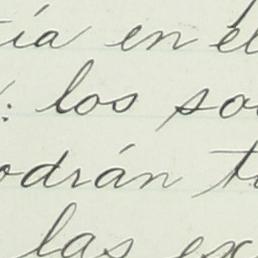 ía en él
: los so
odrán t
las ex